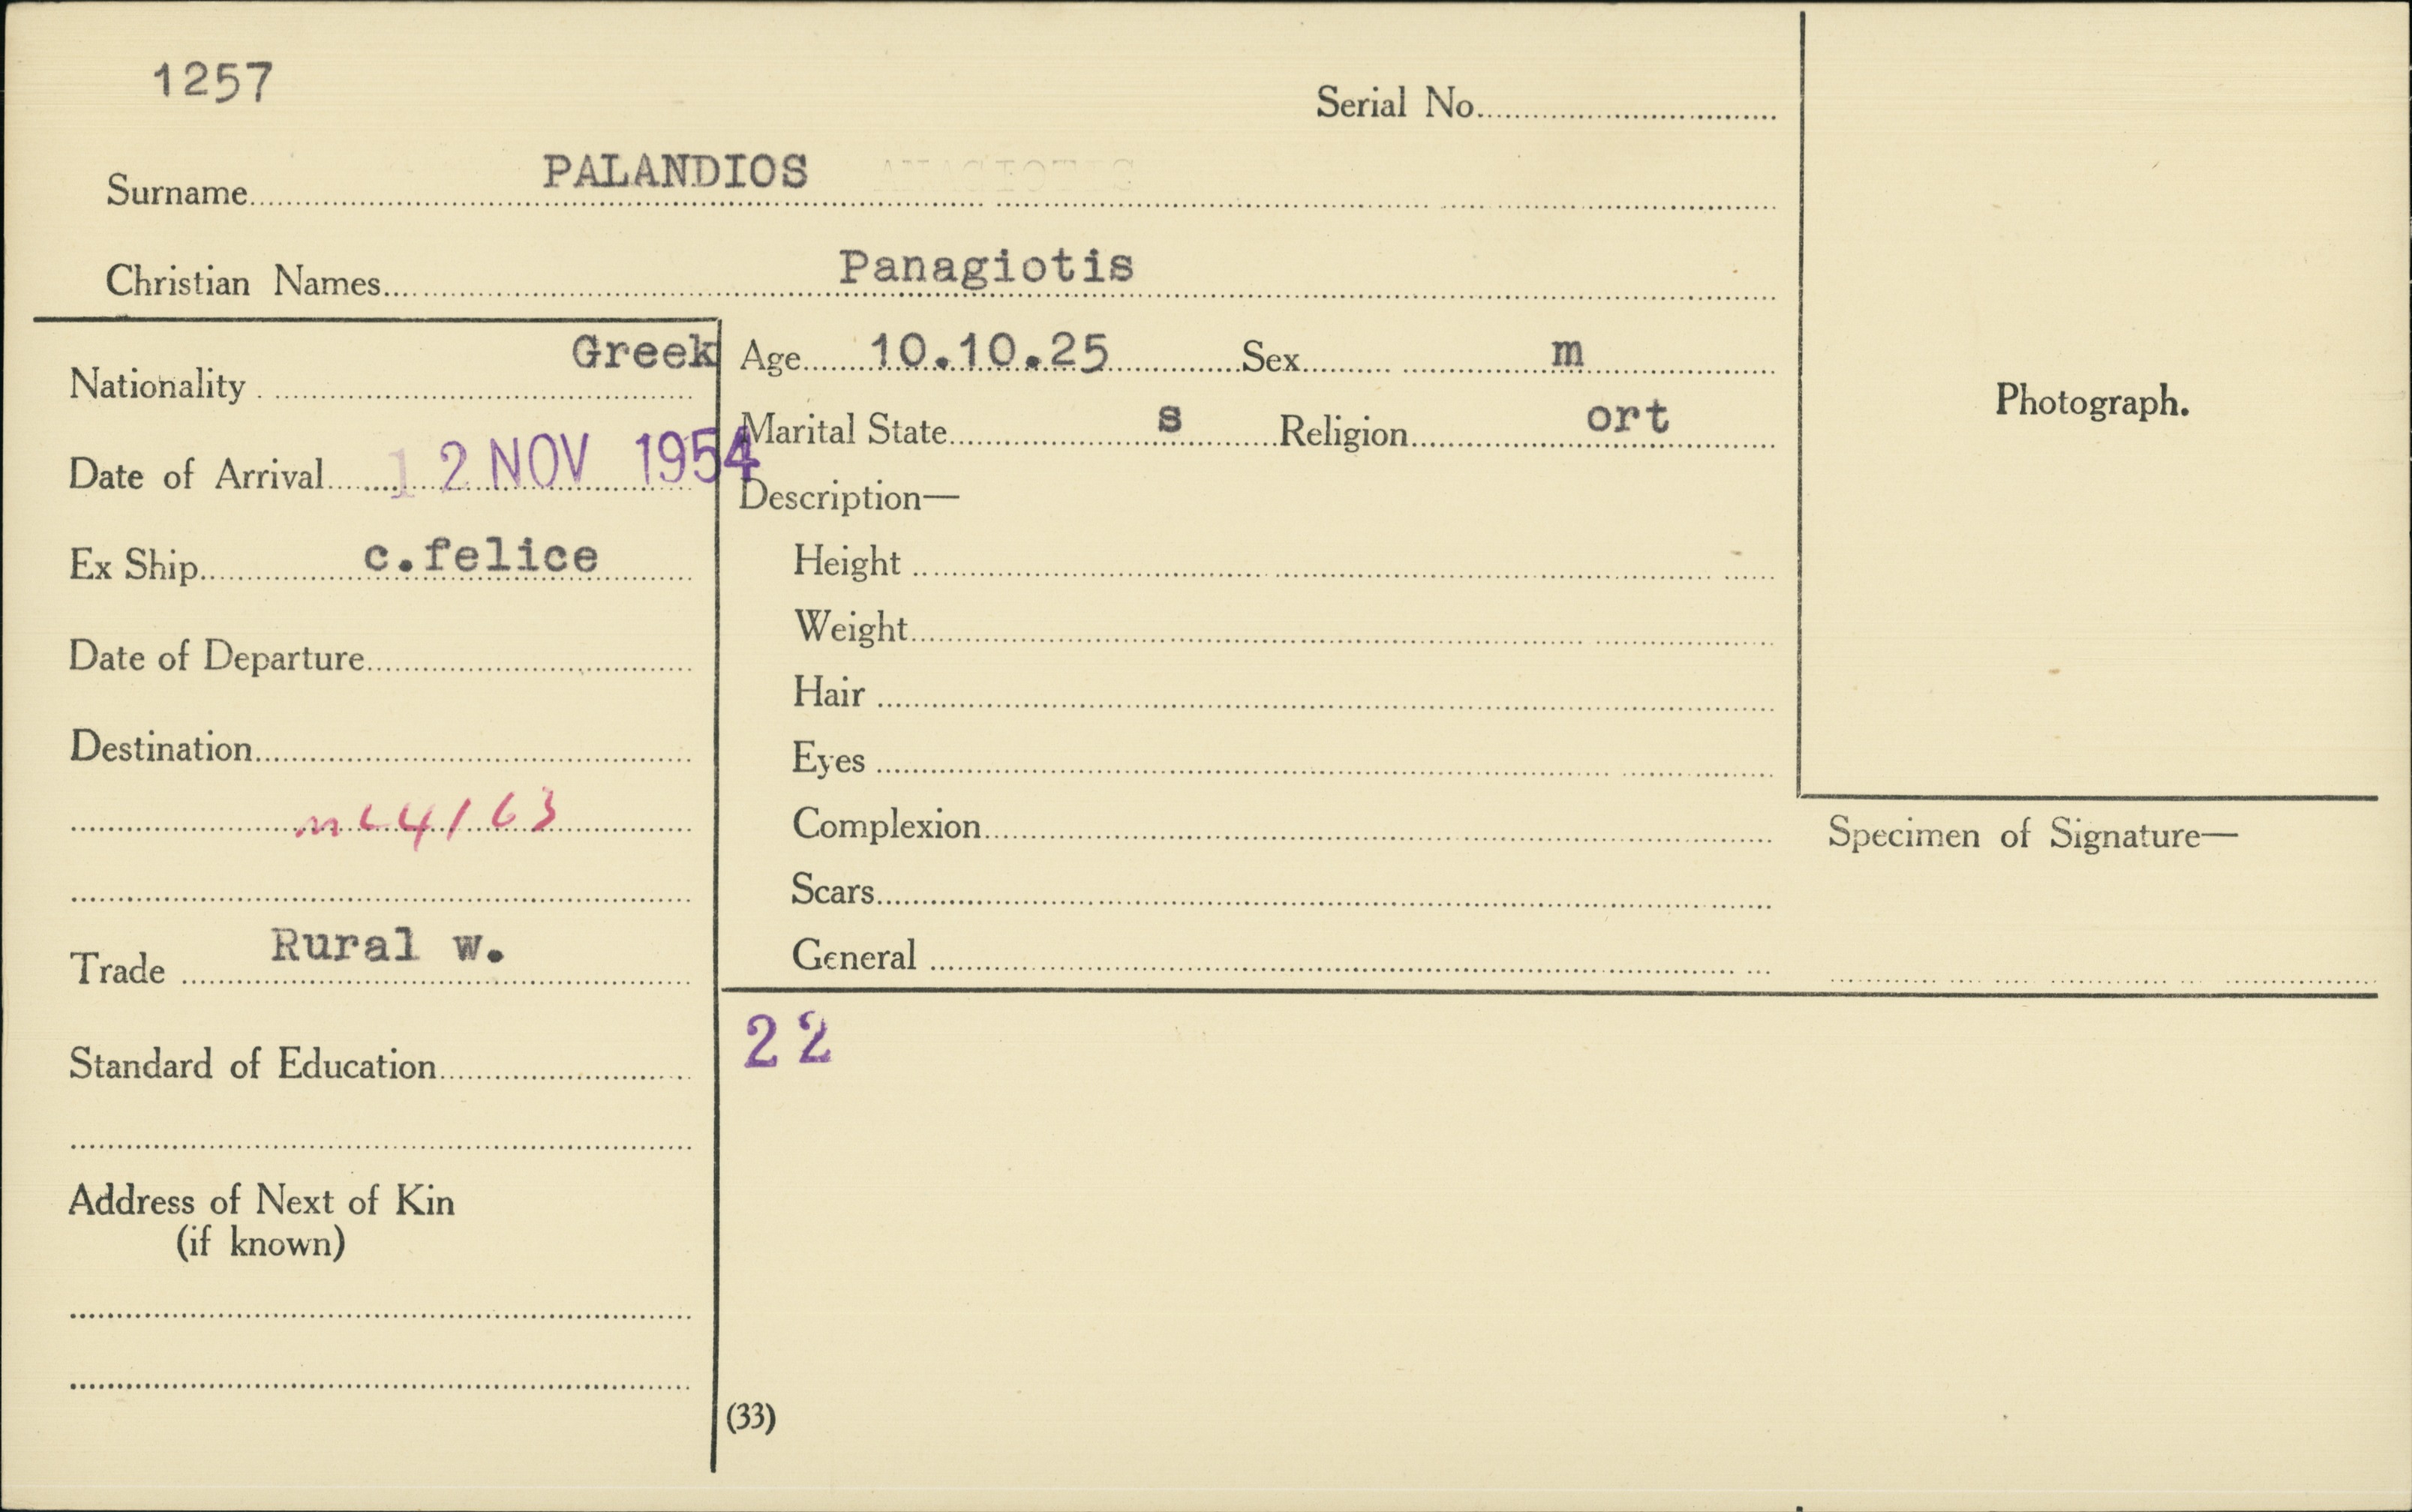 1257
Serial No.
Surname PALANDIOS
Christian Names Panagiotis
Nationality Greek
Date of Arrival 12 NOV 1954
Ex Ship c.felice
Date of Departure
Destination
Trade Rural w.
Standard of Education
Address of Next of Kin
(if known)
Age 10.10.25 Sex m
Marital State s Religion ort
Description—
Height
Weight
Hair
Eyes
Complexion
Scars
General
22
(33)
Photograph.
Specimen of Signature—